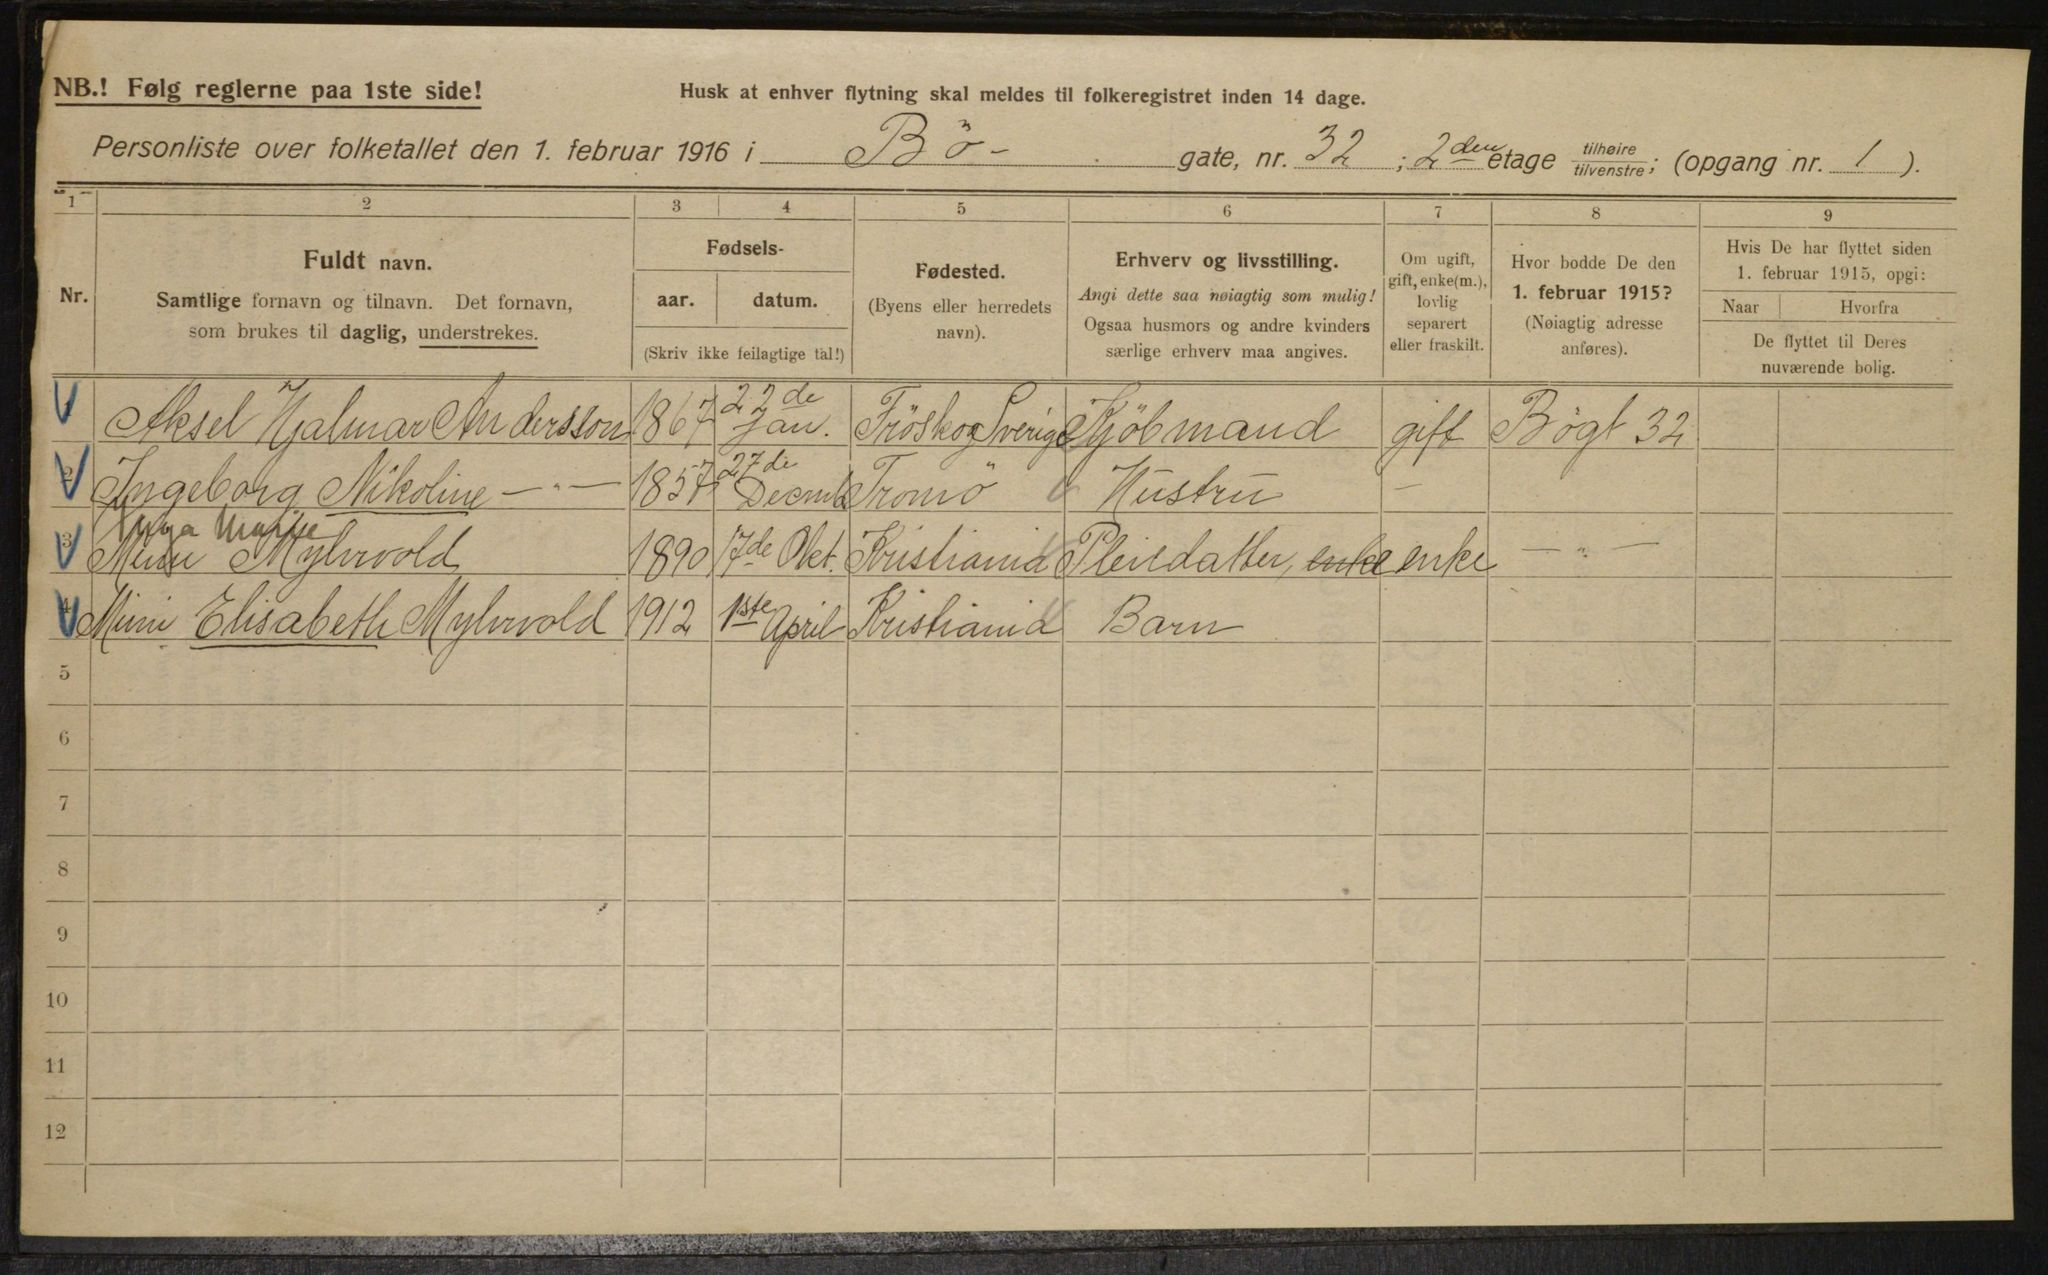 NB.! Følg reglerne paa 1ste side!
Husk at enhver flytning skal meldes til folkeregistret inden 14 dage.
Personliste over folketallet den 1. februar 1916 i Bö- gate, nr. 32 ; 2den etage tilhøire/tilvenstre ; (opgang nr. 1 ).
1 2 3 4 5 6 7 8 9
Nr.
Fuldt navn.
Samtlige fornavn og tilnavn. Det fornavn,
som brukes til daglig, understrekes.
Fødsels-
aar. datum.
(Skriv ikke feilagtige tal!)
Fødested.
(Byens eller herredets
navn).
Erhverv og livsstilling.
Angi dette saa nøiagtig som mulig!
Ogsaa husmors og andre kvinders
særlige erhverv maa angives.
Om ugift,
gift, enke(m.),
lovlig
separert
eller fraskilt.
Hvor bodde De den
1. februar 1915?
(Nøiagtig adresse
anføres).
Hvis De har flyttet siden
1. februar 1915, opgi:
Naar Hvorfra
De flyttet til Deres
nuværende bolig.
Aksel Hjalmar Andersson 1867 22de Jan. Fröskog Sverige Kjöbmand gift Bögt 32
2 Ingeborg Nikoline —"— 1857 27de Decemb Tromö Hustru —
Marie
3 Myhrvold 1890 17de Okt. Kristiania Pleiedatter, enke enke —"—
4 Mimi Elisabeth Myhrvold 1912 1ste April Kristiania Barn
5
6
7
8
9
10
11
12